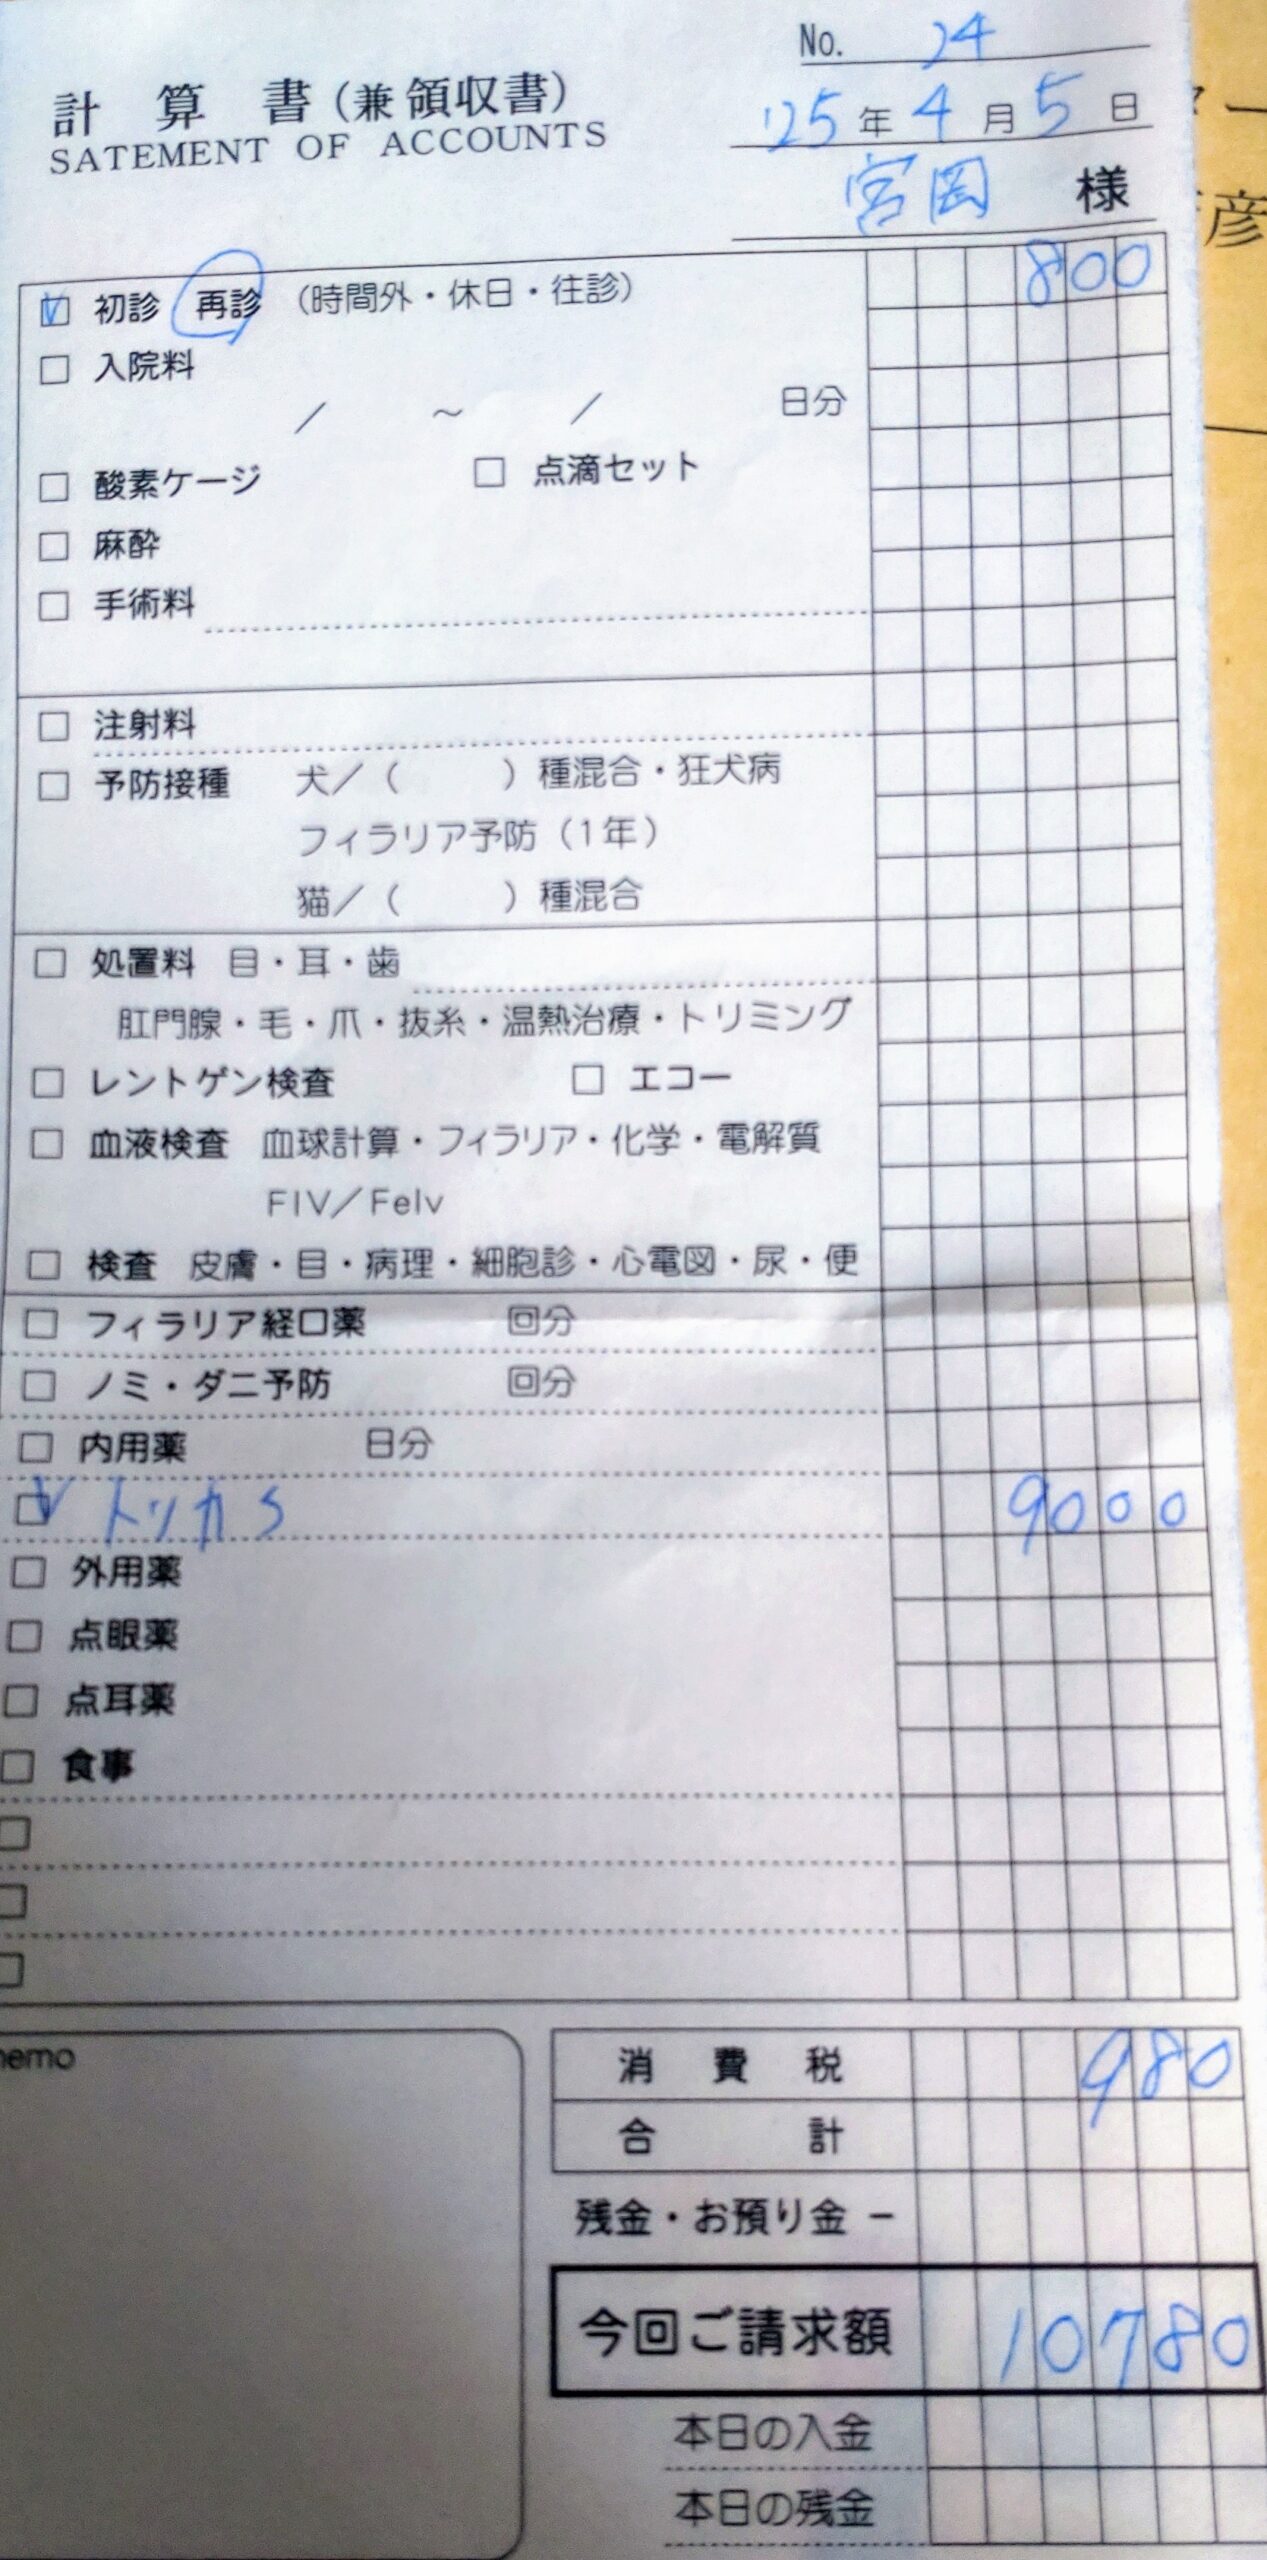 No. 24
計算書(兼領収書)
SATEMENT OF ACCOUNTS
'25年4月5日
宮岡 様
初診 再診 (時間外・休日・往診) 800
入院料
/ ~ / 日分
酸素ケージ 点滴セット
麻酔
手術料
注射料
予防接種 犬/( )種混合・狂犬病
フィラリア予防(1年)
猫/( )種混合
処置料 目・耳・歯
肛門腺・毛・爪・抜糸・温熱治療・トリミング
レントゲン検査 エコー
血液検査 血球計算・フィラリア・化学・電解質
FIV/Felv
検査 皮膚・目・病理・細胞診・心電図・尿・便
フィラリア経口薬 回分
ノミ・ダニ予防 回分
内用薬 日分
9000
外用薬
点眼薬
点耳薬
食事
消費税 980
合計
memo
残金・お預り金 −
今回ご請求額 10780
本日の入金
本日の残金
彦